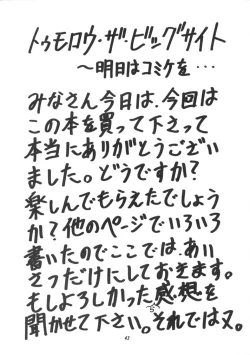 トゥモロウ・ザ・ビッグサイト
～明日はコミケを…
みなさん今日は、今回は
この本を買って下さって
本当にありがとうござい
ました。どうですか?
楽しんでもらえたでしょう
か?他のページでいろいろ
書いたのでここでは、あい
さつだけにしておきます。
もしよろしかったら感想を
聞かせて下さい。それでは又。